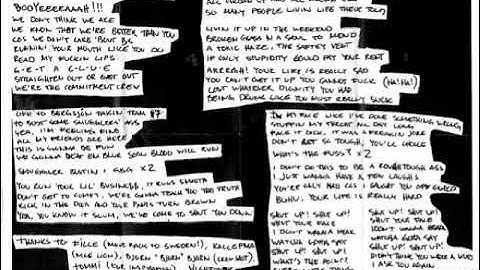 BOOYEEEEAAAH!!!
WE DON'T THINK WE ARE
WE KNOW THAT WE'RE BETTER THAN YOU
COS WE DON'T LIKE 'BOUT BE
RUNNIN' YOUR MOUTH LIKE YOU DO
READ MY FUCKIN LIPS
G-E-T A C-L-U-E
STRAIGHTEN OUT OR GET OUT
WE'RE THE COMMITMENT CREW
SO MANY PEOPLE LIVIN LIFE THESE
LIVIN IT UP IN THE WEEKEND
BROKEN GLASS N A SOUL TO MEND
A TOXIC HAZE, THE SAFETY VENT
IF ONLY STUPIDITY COULD PAY YOUR RENT
ARRRGH! YOUR LIFE IS REALLY SAD
YOU CAN'T GET IT UP YOU CANNOT FUCK (HA! HA!)
LOST WHATEVER DIGNITY YOU HAD
BEING DRUNK LIKE YOU MUST REALLY SUCK
OFF TO BERGSJÖN TAKIN TRAM #7
TO BUST SOME SMUGGLERS' ASS
YEA, I'M FEELING FINE
ALL MY FRIENDS ARE HERE
THIS IS GONNA BE FUN
WE GONNA BEAT EM BLUE SOON BLOOD WILL RUN
SMUGGLER BEATIN I GBG X2
YOU RUN YOUR LIL' BUSINESS, IT RUNS
DON'T GET SO COMFY, WE'RE GONNA TEACH YOU THE TRUTH
KICK IN THE DOOR AND YOUR PANTS TURN BROWN
YEA, YOU KNOW IT SCUM, WE'VE COME TO SHUT YOU DOWN
IN MY FACE LIKE I'VE DONE SOMETHING WRONG
STUFFIN MY THROAT ALL DAY LONG
FACE IT DICK, IT WAS A FREAKIN JOKE
DON'T GET SO TOUGH, YOU'LL CHOKE
WHAT'S THE FUSS? X2
I DON'T DO THIS TO BE A ROUGH TOUGH ASS
I JUST WANNA HAVE A FEW LAUGHS
YOU'RE ONLY MAD COS I CAUGHT YOU OFF GUARD
BUHU, YOUR LIFE IS REALLY HARD
SHUT UP! SHUT UP!
SHUT YOUR FACE
I DON'T WANNA HEAR
WATCHA GOTTA SAY
SHUT UP! SHUT UP!
WHAT'S THE POINT?
SHUT UP! SHUT UP!
SHUT YOUR FACE
I DON'T WANNA HEAR
WATCHA GOTTA SAY
SHUT UP! SHUT UP!
DID I ASK YOU
THINK YOU WERE A
THANKS TO: FILLE (MOVE BACK TO SWEDEN!), KALLEPMA